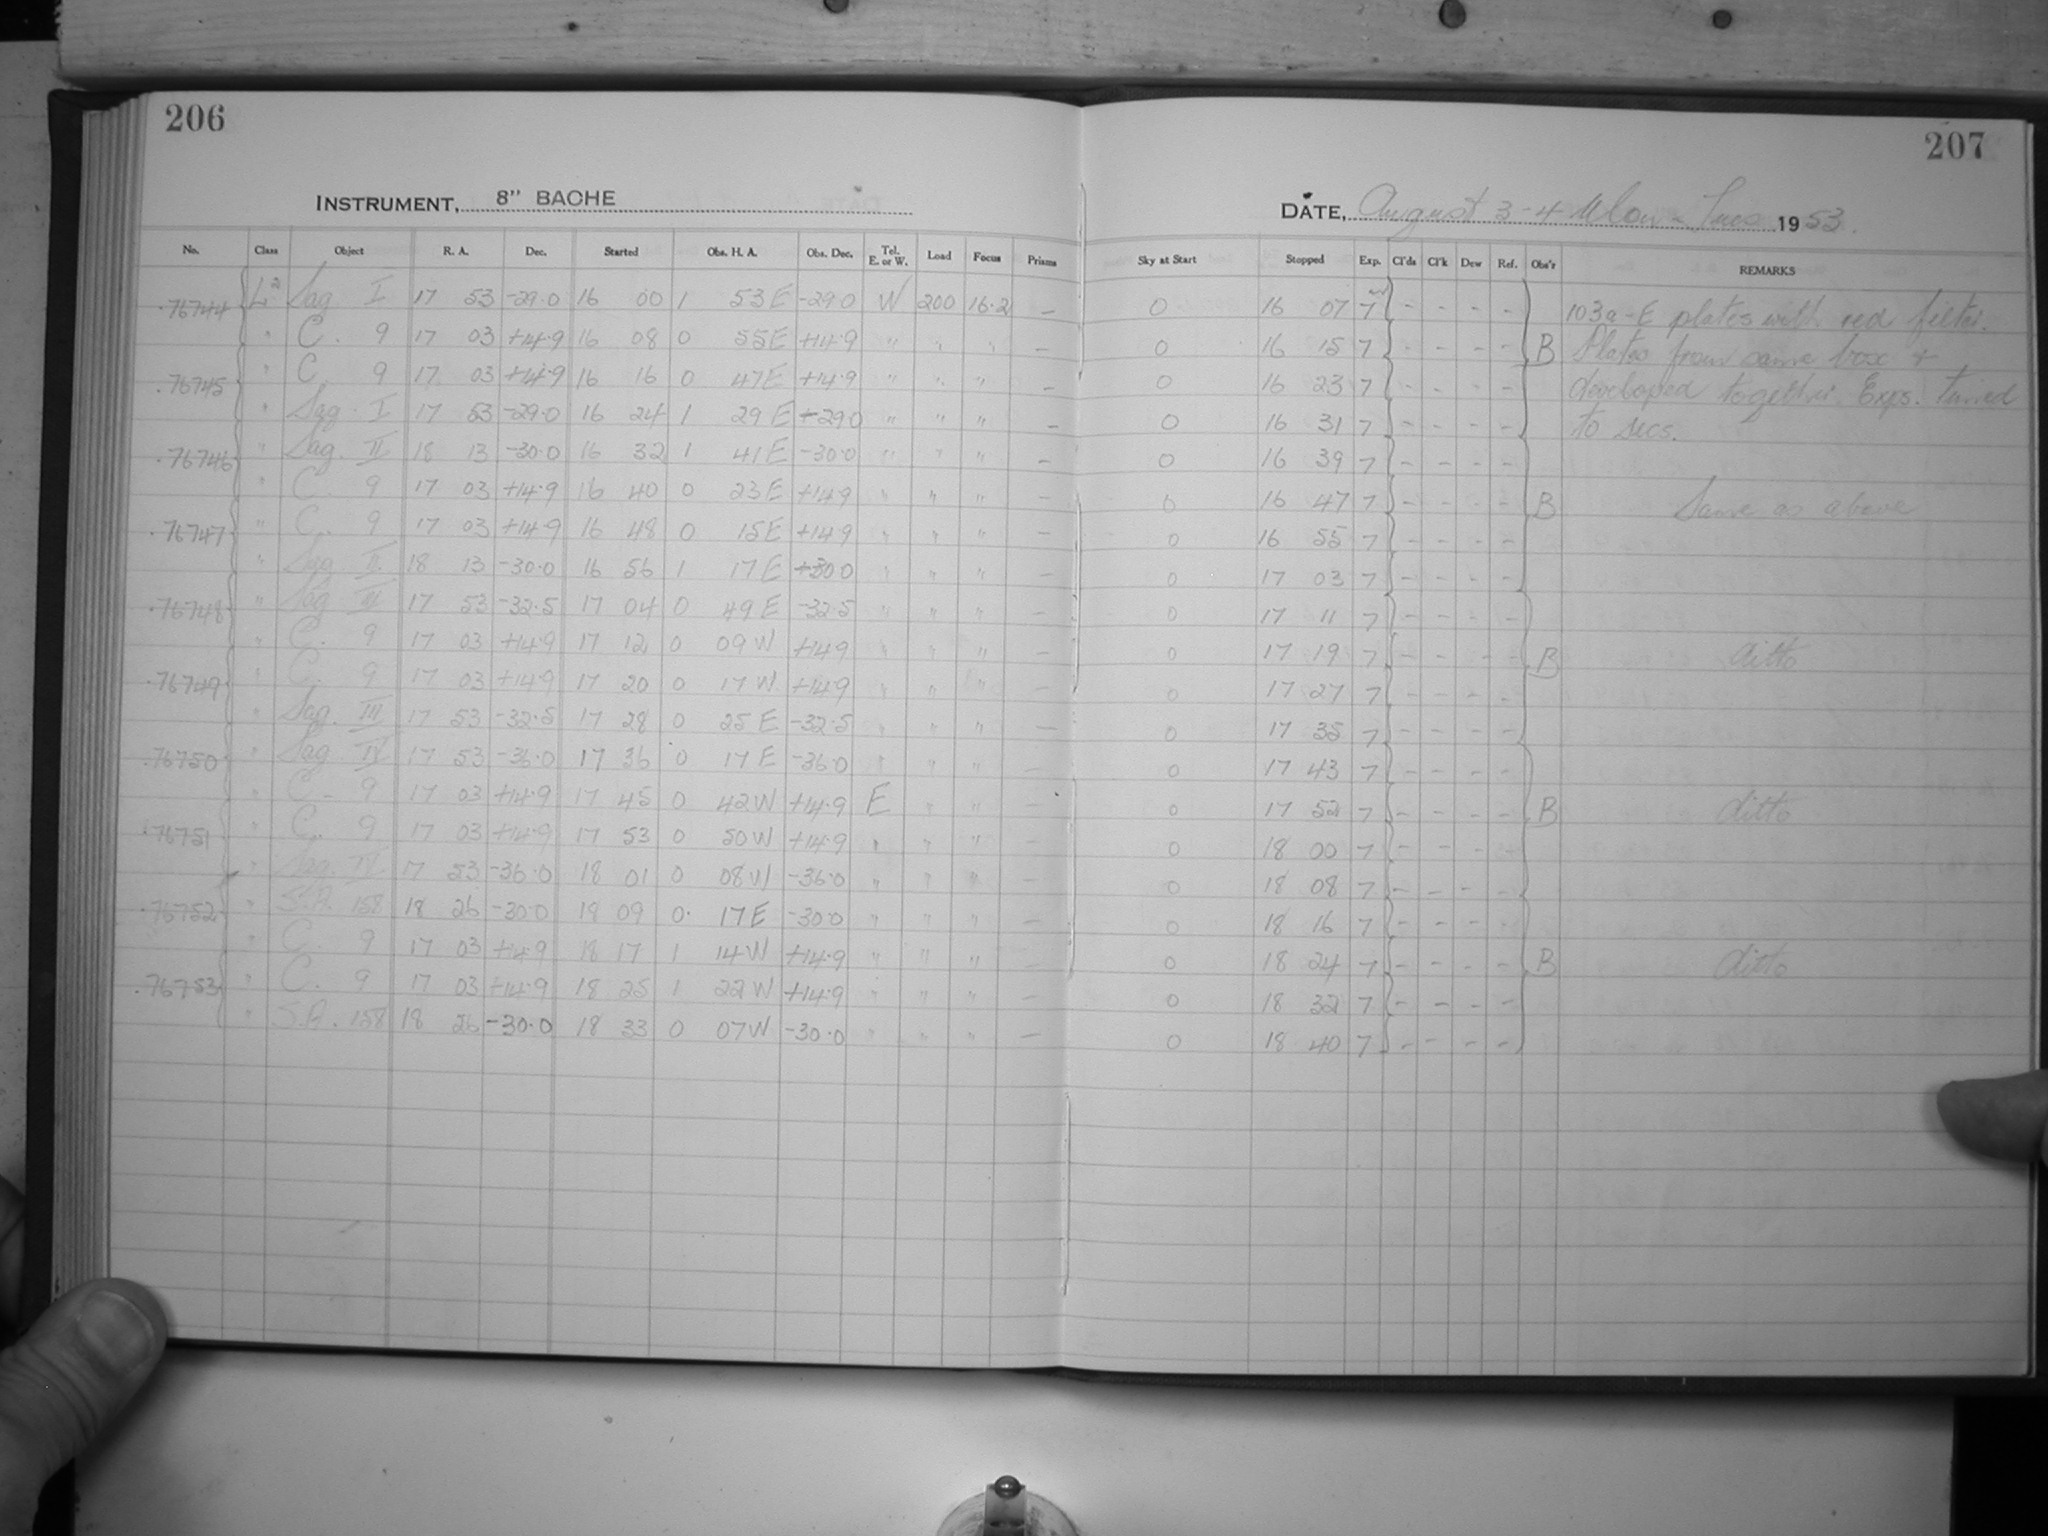 206
INSTRUMENT, 8" BACHE
No. Class Object R. A. Dec. Started Obs. H. A. Obs. Dec. Tel. E. or W. Load Focus Prisms
76744 L2 Sag. I 17 53 -29.0 16 00 1 53 E -29.0 W 200 16.2 —
" C. 9 17 03 +14.9 16 08 0 55 E +14.9 " " " —
76745 " C 9 17 03 +14.9 16 16 0 47 E +14.9 " " " —
" Sag. I 17 53 -29.0 16 24 1 29 E -29.0 " " " —
76746 " Sag. II 18 13 -30.0 16 32 1 41 E -30.0 " " " —
" C. 9 17 03 +14.9 16 40 0 23 E +14.9 " " " —
76747 " C. 9 17 03 +14.9 16 48 0 15 E +14.9 " " " —
" Sag. II 18 13 -30.0 16 56 1 17 E -30.0 " " " —
76748 " Sag. III 17 53 -32.5 17 04 0 49 E -32.5 " " " —
" C. 9 17 03 +14.9 17 12 0 09 W +14.9 " " " —
76749 " C. 9 17 03 +14.9 17 20 0 17 W +14.9 " " " —
" Sag. III 17 53 -32.5 17 28 0 25 E -32.5 " " " —
76750 " Sag. IV 17 53 -36.0 17 36 0 17 E -36.0 " " " —
" C. 9 17 03 +14.9 17 45 0 42 W +14.9 E " " —
76751 " C. 9 17 03 +14.9 17 53 0 50 W +14.9 " " " —
" Sag. IV 17 53 -36.0 18 01 0 08 W -36.0 " " " —
76752 " S.A. 158 18 26 -30.0 18 09 0 17 E -30.0 " " " —
" C. 9 17 03 +14.9 18 17 1 14 W +14.9 " " " —
76753 " C. 9 17 03 +14.9 18 25 1 22 W +14.9 " " " —
" S.A. 158 18 26 -30.0 18 33 0 07 W -30.0 " " " —
207
DATE, August 3-4 Mon - Tues 1953.
Sky at Start Stopped Exp. Cl'ds Cl'k Dew Ref. Obs'r REMARKS
0 16 07 7 - - - - 103a-E plates with red filter.
0 16 15 7 - - - - B Plates from same box +
0 16 23 7 - - - - developed together. Exps. timed
0 16 31 7 - - - - to secs.
0 16 39 7 - - - -
0 16 47 7 - - - - B Same as above
0 16 55 7 - - - -
0 17 03 7 - - - -
0 17 11 7 - - - -
0 17 19 7 - - - - B ditto
0 17 27 7 - - - -
0 17 35 7 - - - -
0 17 43 7 - - - -
0 17 52 7 - - - - B ditto
0 18 00 7 - - - -
0 18 08 7 - - - -
0 18 16 7 - - - -
0 18 24 7 - - - - B ditto
0 18 32 7 - - - -
0 18 40 7 - - - -